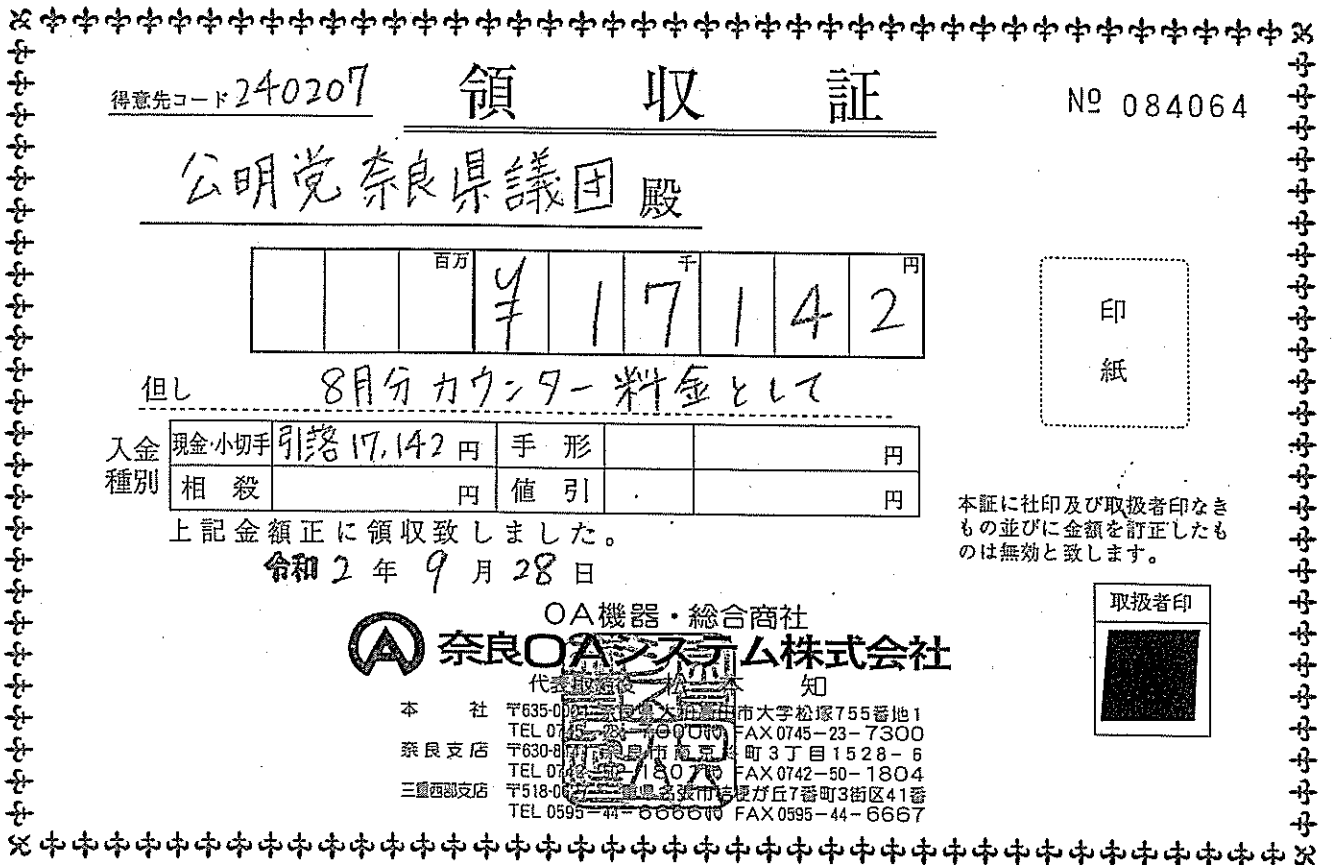 得意先コード 240207
領収証
№ 084064
公明党奈良県議団 殿
百万 千 円
¥17142
印紙
但し 8月分カウンター料金として
入金種別
現金・小切手 引落 17,142 円 手形 円
相殺 円 値引 円
上記金額正に領収致しました。
令和 2 年 9 月 28 日
本証に社印及び取扱者印なき
もの並びに金額を訂正したも
のは無効と致します。
取扱者印
OA機器・総合商社
奈良OAシステム株式会社
代表取締役 松本 知
本社 〒635-0 市大字松塚755番地1
TEL 0745 FAX 0745-23-7300
奈良支店 〒630-8 町3丁目1528-6
TEL 0742 FAX 0742-50-1804
三重西部支店 〒518-0 名張市桔梗が丘7番町3街区41番
TEL 0595-44-6666 FAX 0595-44-6667